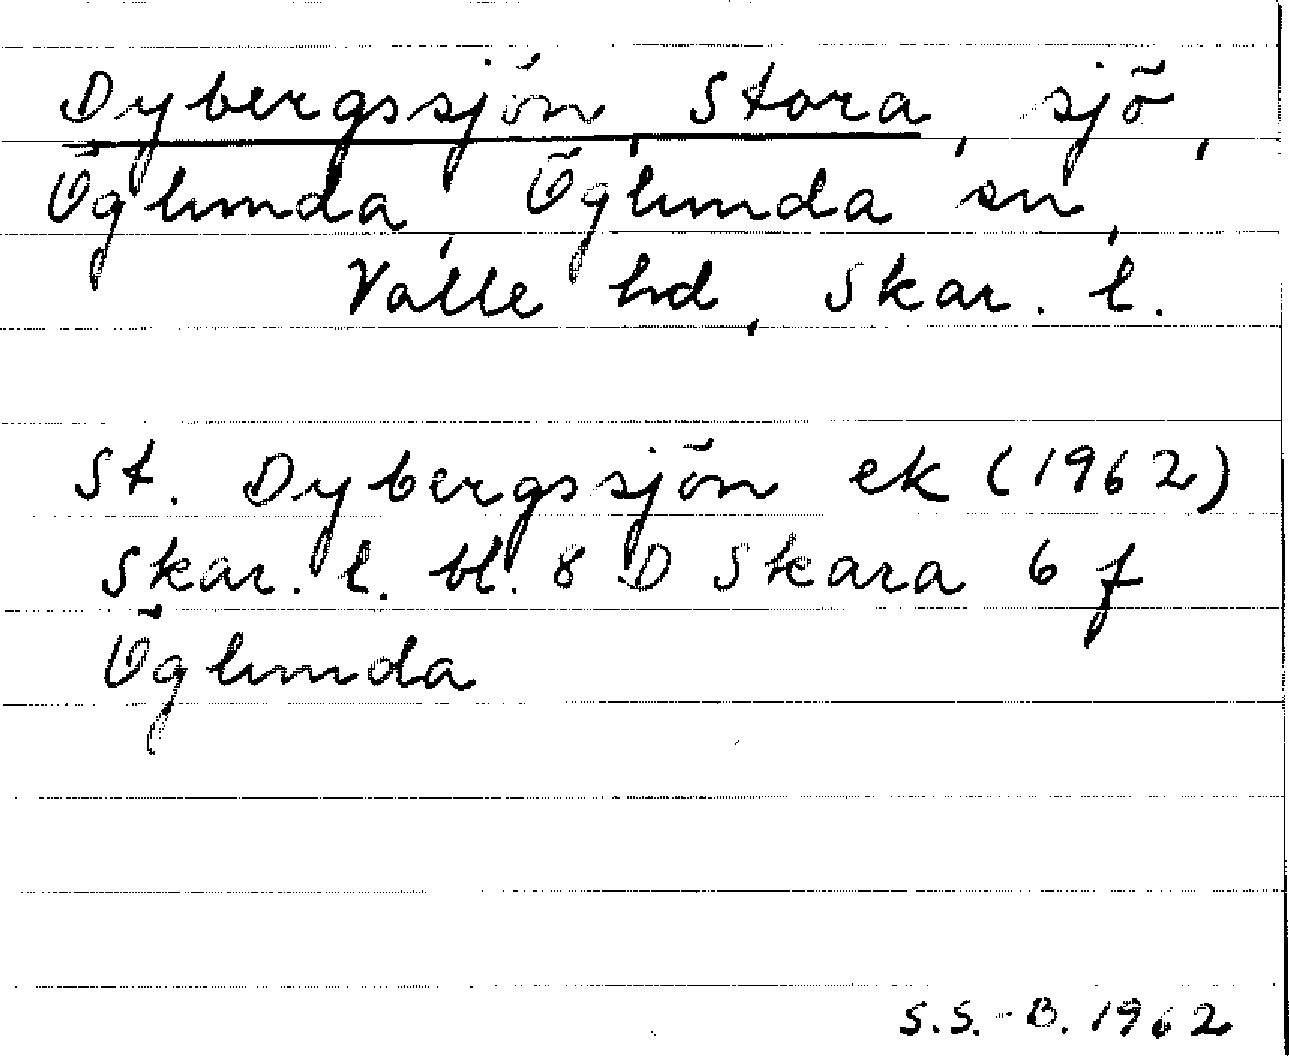 Dybergssjön, Stora, sjö,
Öglunda, Öglunda sn,
Valle hd, Skar. l.
St. Dybergssjön ek (1962)
Skar. l. bl. 8 D Skara 6 f
Öglunda
S.S.-B. 1962